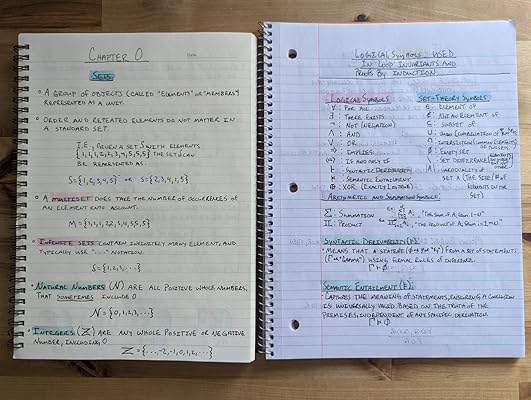 CHAPTER 0
SETS
• A GROUP OF OBJECTS (CALLED "ELEMENTS" OR "MEMBERS")
REPRESENTED AS A UNIT.
• ORDER AND REPEATED ELEMENTS DO NOT MATTER IN
A STANDARD SET.
I.E., GIVEN A SET S WITH ELEMENTS
THE SET CAN
BE REPRESENTED AS
S={1,2,3,4,5} OR S={2,3,4,1,5}
• A MULTISET DOES TAKE THE NUMBER OF OCCURRENCES OF
AN ELEMENT INTO ACCOUNT.
• INFINITE SETS CONTAIN INFINITELY MANY ELEMENTS, AND
TYPICALLY USE "..." NOTATION.
S={1,2,3,...}
• NATURAL NUMBERS (N) ARE ALL POSITIVE WHOLE NUMBERS,
THAT SOMETIMES INCLUDE 0
N={0,1,2,3,...}
• INTEGERS (Z) ARE ANY WHOLE POSITIVE OR NEGATIVE
NUMBER, INCLUDING 0
Z={...,-2,-1,0,1,2,...}
LOGICAL SYMBOLS USED
IN LOOP INVARIANTS AND
PROOFS BY INDUCTION
LOGICAL SYMBOLS
∀: FOR ALL
∃: THERE EXISTS
¬: NOT (NEGATION)
∧: AND
∨: OR
⇒: IMPLIES
⇔: IF AND ONLY IF
⊢: SYNTACTIC DERIVABILITY
⊨: SEMANTIC ENTAILMENT
⊕: XOR (EXACTLY 1 IS TRUE)
SET-THEORY SYMBOLS
∈: ELEMENT OF
∉: NOT AN ELEMENT OF
⊆: SUBSET OF
∪: UNION (COMBINATION OF
∩: INTERSECTION (COMMON ELEMENTS
∅: EMPTY SET
\: SET DIFFERENCE
|A|: CARDINALITY OF
SET A (THE SIZE / # OF
ELEMENTS IN THE
SET)
ARITHMETIC AND SUMMATION SYMBOLS
Σ: SUMMATION
Π: PRODUCT
SYNTACTIC DERIVABILITY (⊢):
• MEANS THAT A STATEMENT FROM A SET OF STATEMENTS
USING FORMAL RULES OF INFERENCE.
Γ⊢Φ
SEMANTIC ENTAILMENT (⊨):
• CAPTURES THE MEANING OF STATEMENTS, ENSURING A CONCLUSION
IS UNIVERSALLY VALID BASED ON THE TRUTH OF THE
PREMISES, INDEPENDENT OF ANY SPECIFIC DERIVATION.
Γ⊨Φ